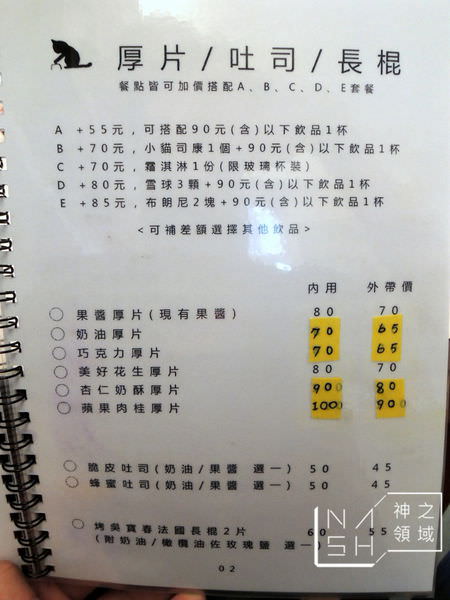 厚片/吐司/長棍
餐點皆可加價搭配A、B、C、D、E套餐
A +55元,可搭配90元(含)以下飲品1杯
B +70元,小貓司康1個+90元(含)以下飲品1杯
C +70元,霜淇淋1份(限玻璃杯裝)
D +80元,雪球3顆+90元(含)以下飲品1杯
E +85元,布朗尼2塊+90元(含)以下飲品1杯
<可補差額選擇其他飲品>
內用 外帶價
果醬厚片(現有果醬) 80 70
奶油厚片 70 65
巧克力厚片 70 65
美好花生厚片 80 70
杏仁奶酥厚片 90 80
蘋果肉桂厚片 100 90
脆皮吐司(奶油/果醬 選一) 50 45
蜂蜜吐司(奶油/果醬 選一) 50 45
烤吳寶春法國長棍2片 60 55
(附奶油/橄欖油佐玫瑰鹽 選一)
02
NISH 神之領域